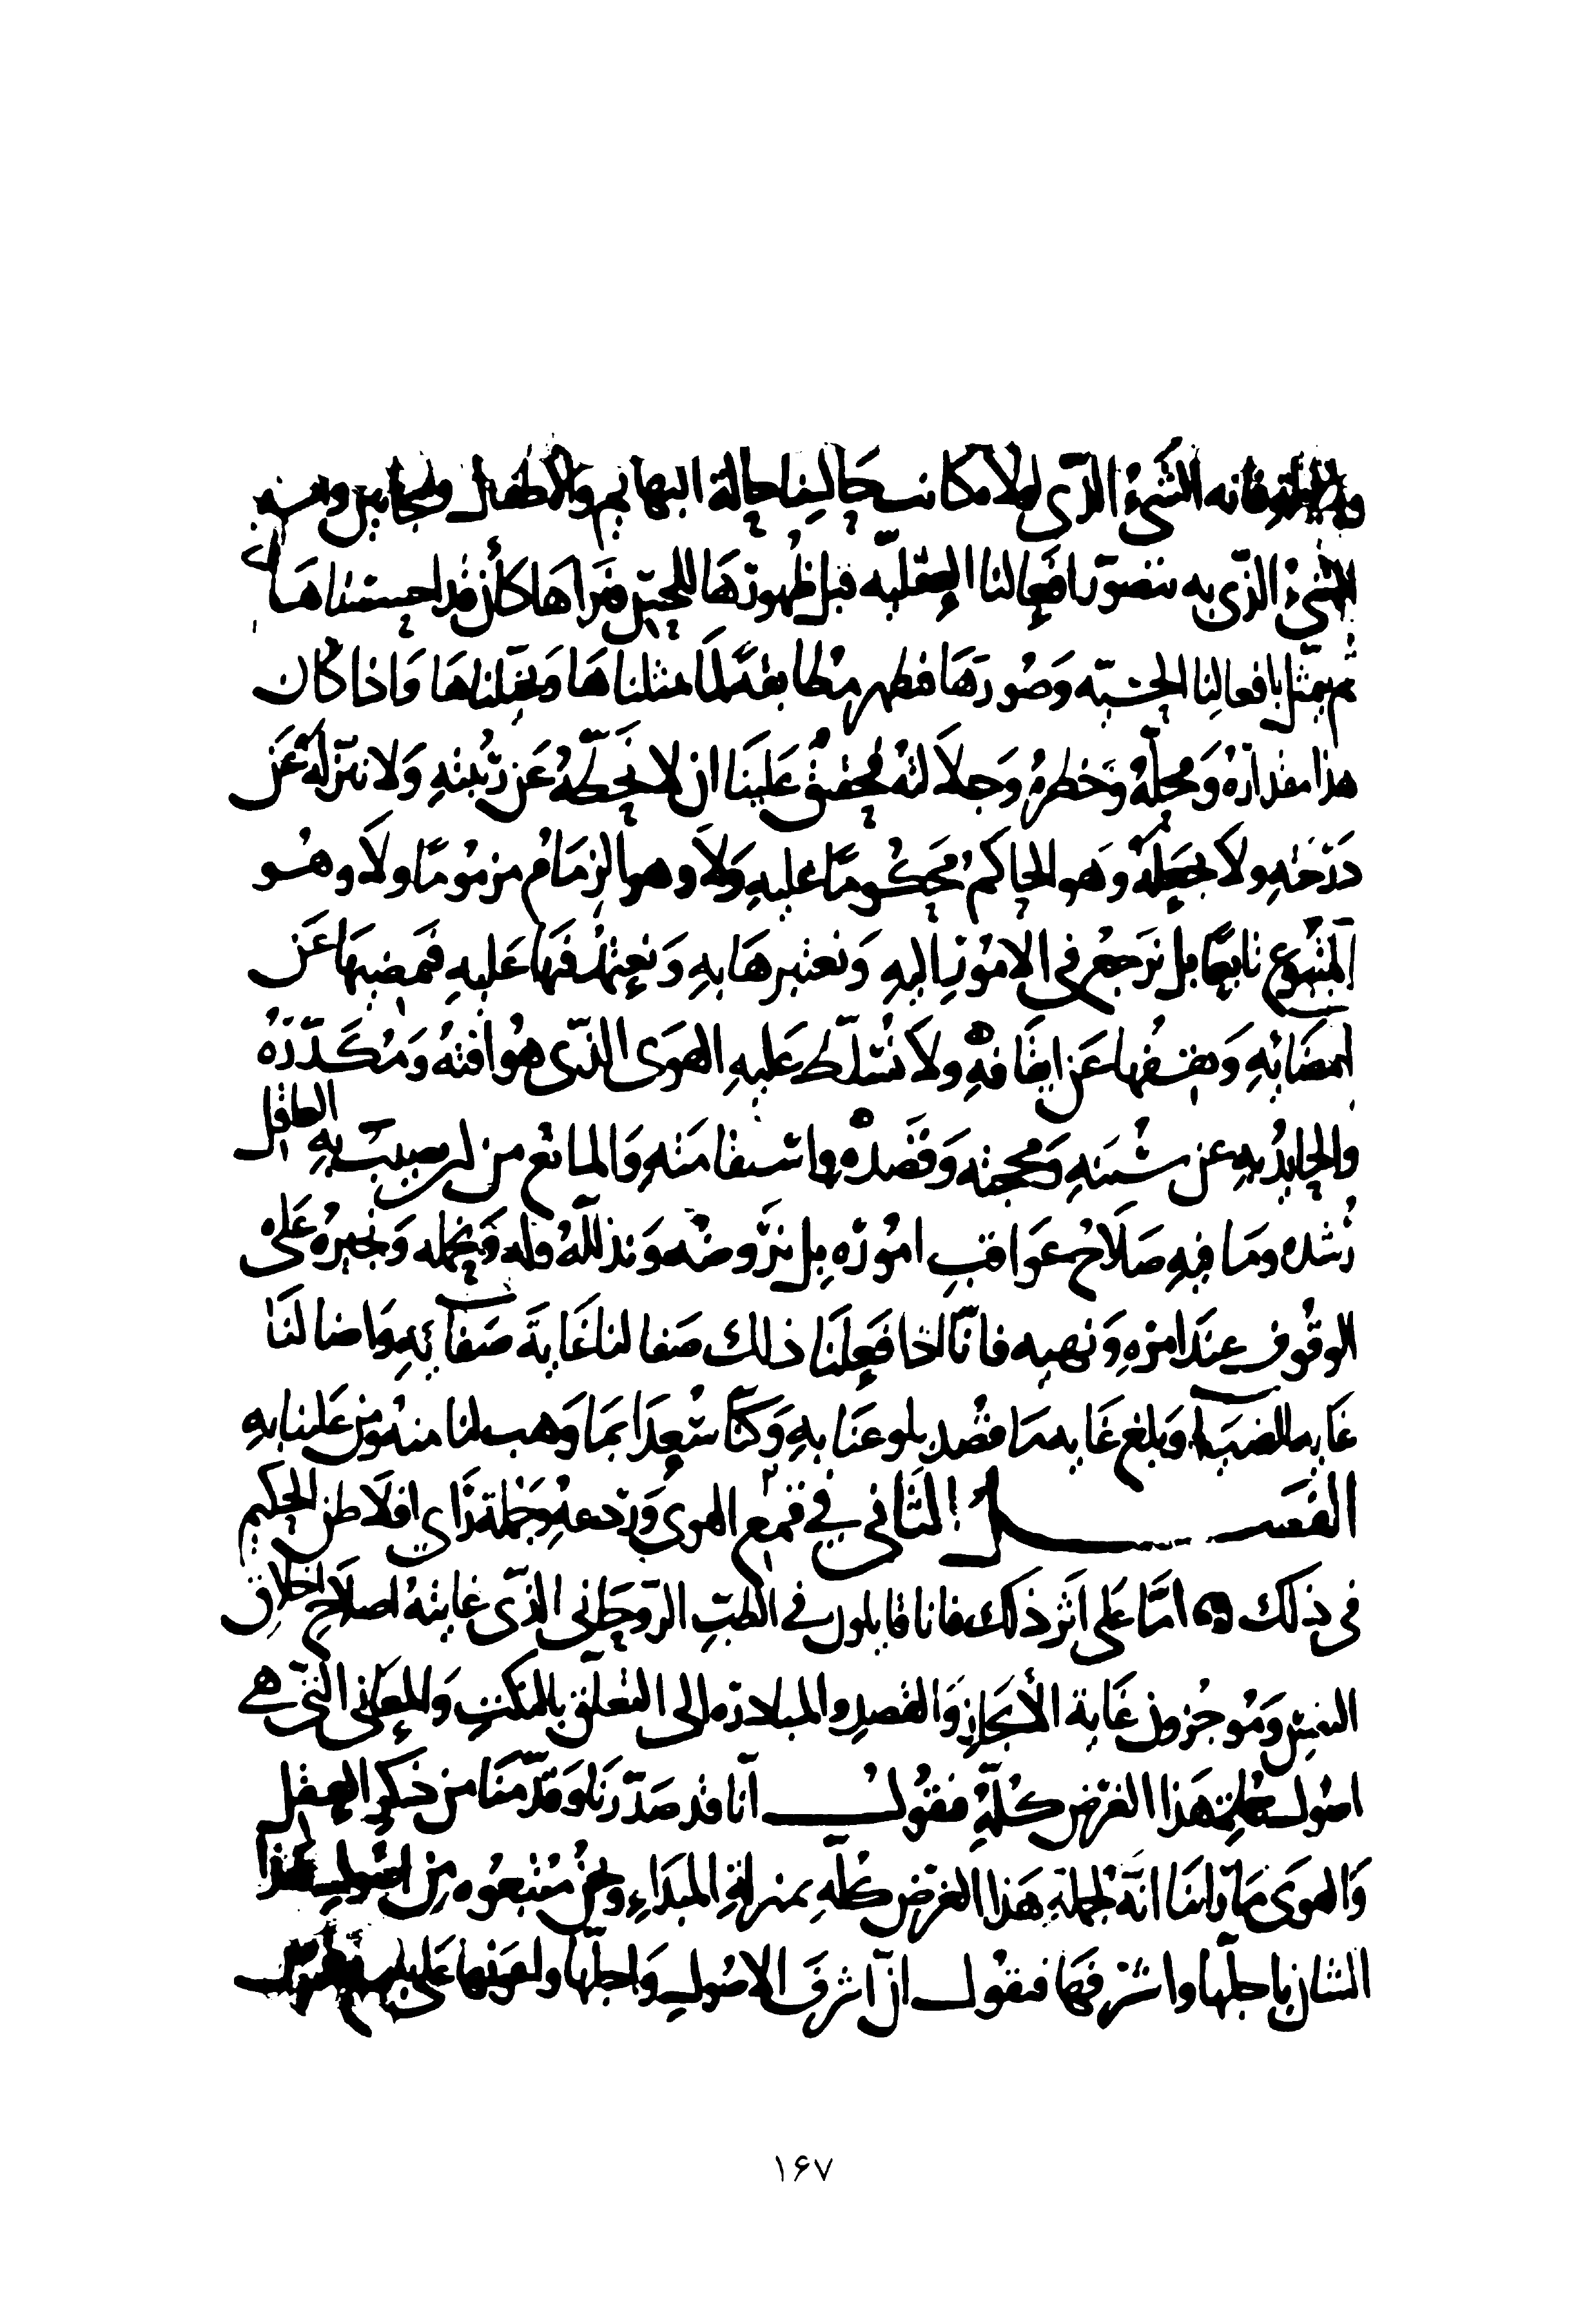 وبالجملة فانه الشيءُ الذى لولاه كانت حالتنا حالة البهايم والاطفال والمجانين وهو
الشيءُ الذى به نتصوّر افعالنا العقليّه قبل ظُهورهَا للحِسّ فنرَاهَا كأن قد احسسْناهَا
ثم نمثّل بافعالِنا الحِسّيّه وَصُورَهَا فتظهر مطابقهً لمَا مثلناهَا وتخيّلناهَا وَاذا كان
هذا مقدارُهُ وَمحلّهُ وَخطرُهُ وَجلاَلتهُ فحقيق عَلينَا ان لا نحطّهُ عَن رُتْبتِهِ وَلا ننزلهُ عَن
دَرَجَتهِ ولاَ نجعَلهُ وهو الحاكمُ مَحكُومًا عليهِ وَلاَ وهو الزمَامُ مزمُومًا ولاَ وهُو
المتبُوع تابعًا بل نَرجعُ في الامُورِ اليهِ وَنعتبرهَا بهِ وَنعتمدُ فيهَا عَليهِ فنمضيهَا عَن
امضَائهِ وَنقفُها عَن ايقَافهِ ولاَ نُسَلّطُ عَليهِ الهوَى الذّى هُو افتهُ وَمُكَدّرَهُ
والحايدُ بهِ عن سُنَنهِ وَمحجته وَقَصْدهِ واستقامَتهِ وَالمانع من ان يصيب بهِ العاقل
رُشدهُ ومَا فيهِ صَلاَحُ عوَاقبِ امُورهِ بل نَرُوضهُ وَنذللهُ وَنحمله وَنجبرهُ عَلى
الوقُوف عِندَ امرهِ وَنهيه فانّا اذا فعَلنَا ذلك صَفا لنا غَايةَ صَفائهِ وَاضا لنَا
غَايه اضائته وَبلغ بنا غَايه مَا قصد بلوغنَا بهِ وَكنّا سُعَدَا بمَا وَهب لنا منهُ ومنّ عَلينا بهِ
الفَصـل الثَاني في قمْع الهوى وَردعهِ وجُملة رَاي افلاَطن الحكيم
في ذلكَ امّا عَلى اَثر ذلكَ فانا قايلون في الطبّ الرّوحَاني الذّى غايتهُ اصلاَح اخلاق
النفس وَمُوجزون غَاية الأيجاز وَالقصدِ والمبادره الى التعلّق بالنكت وَالمعَاني التّى هي
اصُول جملةِ هَذا الغرَض كُلّهِ فنقُول انّا قد صَدّرْنَا وَقدّمنَا من ذكرِ العَقل
وَالهوَى مَا رَاينَا انّه لجملةِ هَذا الغرَض كلّهِ بمنزلة المبدَاءِ ونحنُ متبعُوه من اصُول هَذا
الشان باجلّها واشرفَهَا فنقول انّ اشرفَ الاصُول وَاجلّها
١۶٧